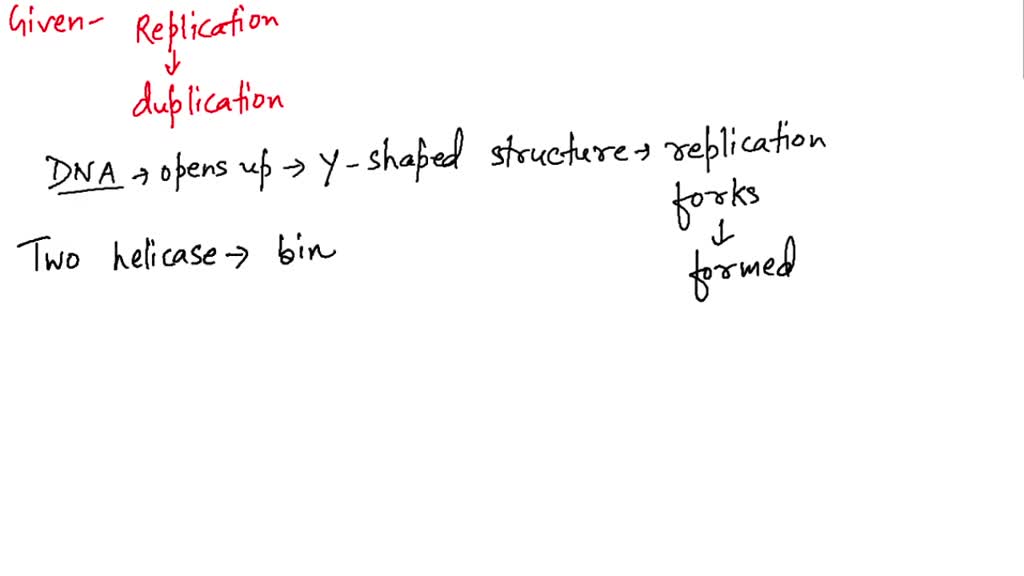 Given- Replication
↓
duplication
DNA → opens up → Y-shaped structure → replication
forks
↓
formed
Two helicase → bin